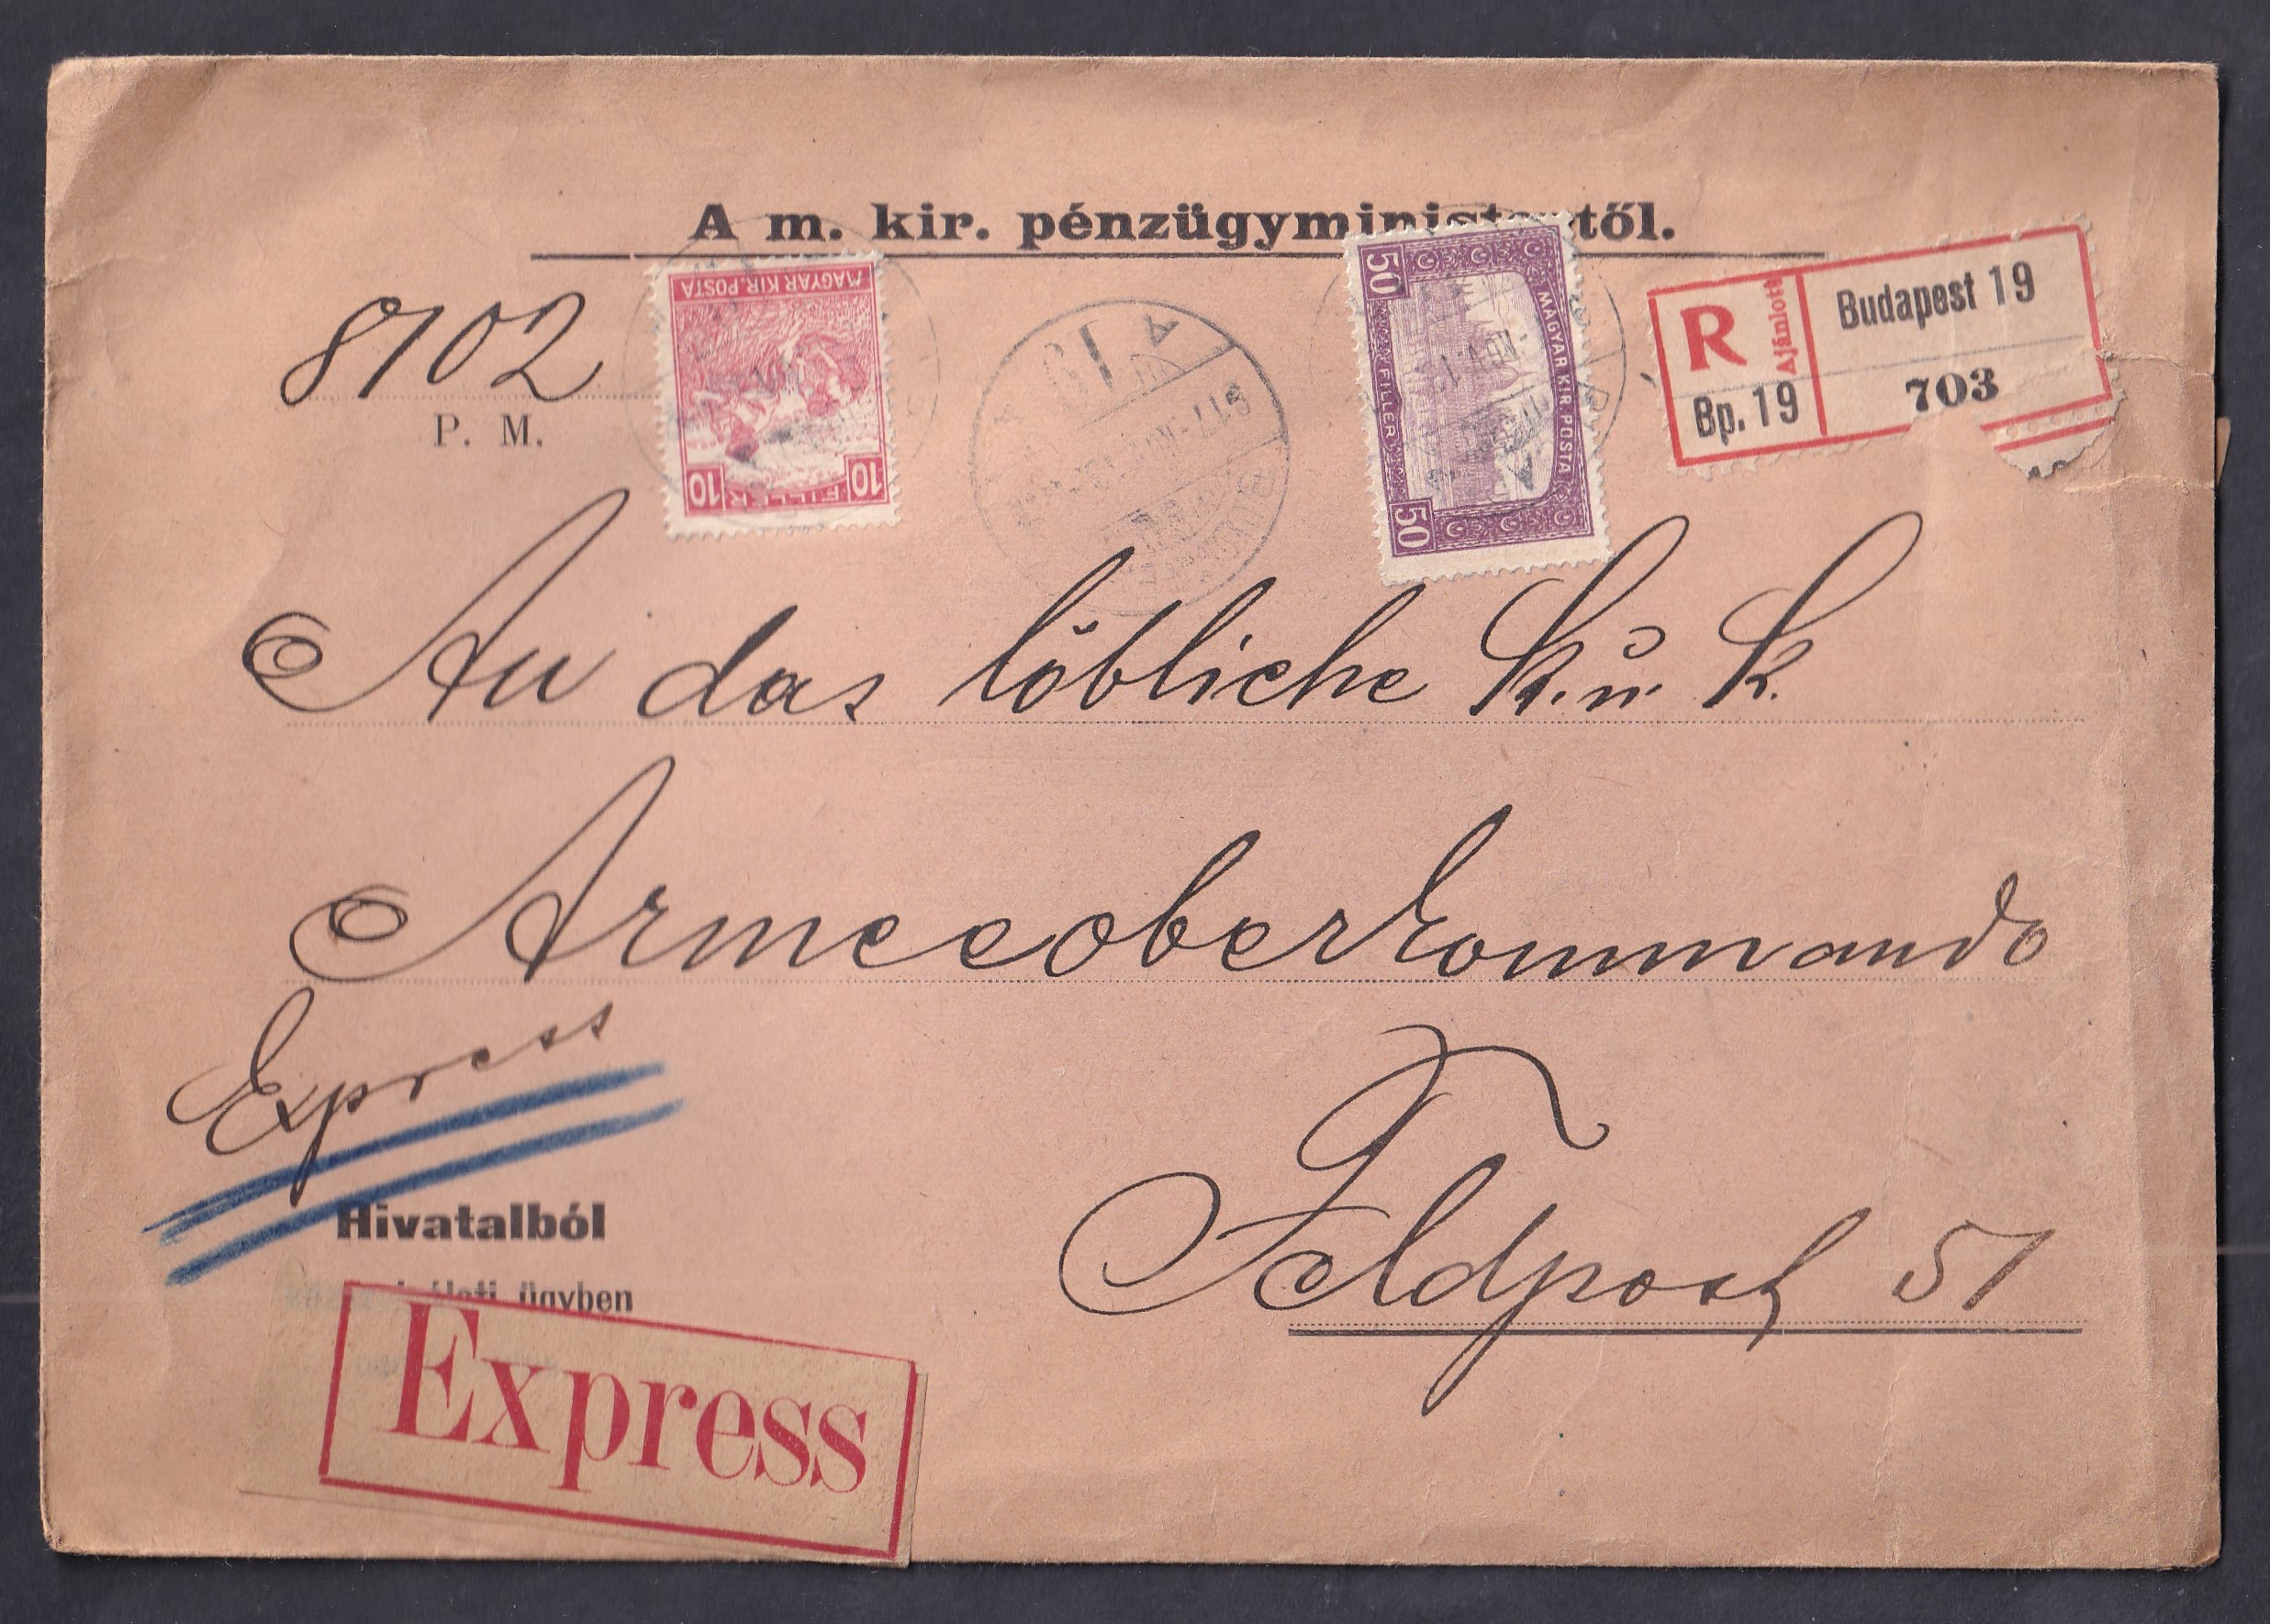 A m. kir. pénzügyministertől.
8702
P. M.
MAGYAR KIR. POSTA
10 FILLÉR 10
19 A
50 MAGYAR KIR. POSTA
FILLÉR 50
R Ajánlott Budapest 19
Bp. 19 703
An das löbliche K. u. K.
Armeeoberkommando
Express
Feldpost 51
Hivatalból
ügyben
Express